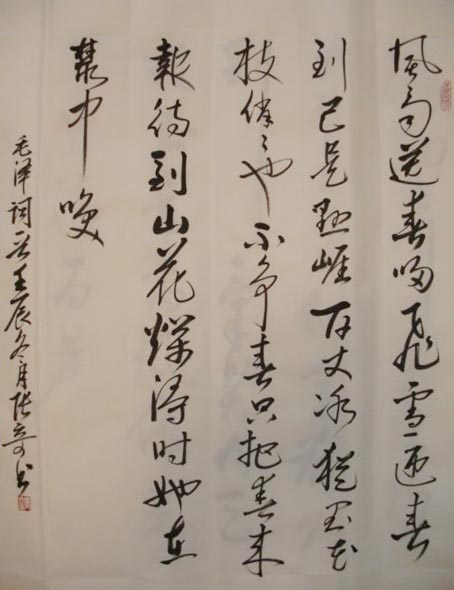 風雨送春歸飛雪迎春
到已是懸崖百丈冰猶有花
枝俏々也不争春只把春来
報待到山花爛漫时她在
叢中咲
毛泽词壬辰冬月张奇书